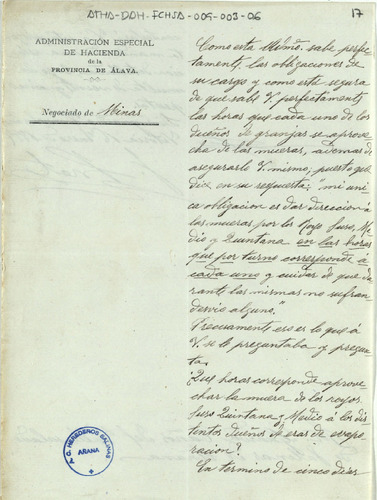 ATHA-DAH-FCHSA-009-003-06
17
ADMINISTRACIÓN ESPECIAL
DE HACIENDA
de la
PROVINCIA DE ÁLAVA.
Negociado de Minas
Como esta Admón. sabe perfec-
tamente las obligaciones de
su cargo y como está segura
de que sabe V. perfectamente
las horas que cada uno de los
dueños de granjas se aprove-
cha de las mueras, además de
asegurarlo V. mismo, puesto que
dice en su respuesta; "mi uni-
ca obligacion es dar direccion á
las mueras por los Royo Suso, Me-
dio y Quintana en las horas
que por turno corresponde á
cada uno y cuidar de que du-
rante las mismas no sufran
desvio alguno."
Precisamente eso es lo que á
V. se le preguntaba y pregun-
ta.
¿Qué horas corresponde aprove-
char la muera de los royos
Suso Quintana y Medio á los dis-
tintos dueños de eras de evapo-
racion?
En término de cinco dias
A. C. HEREDEROS SALINAS
ARANA